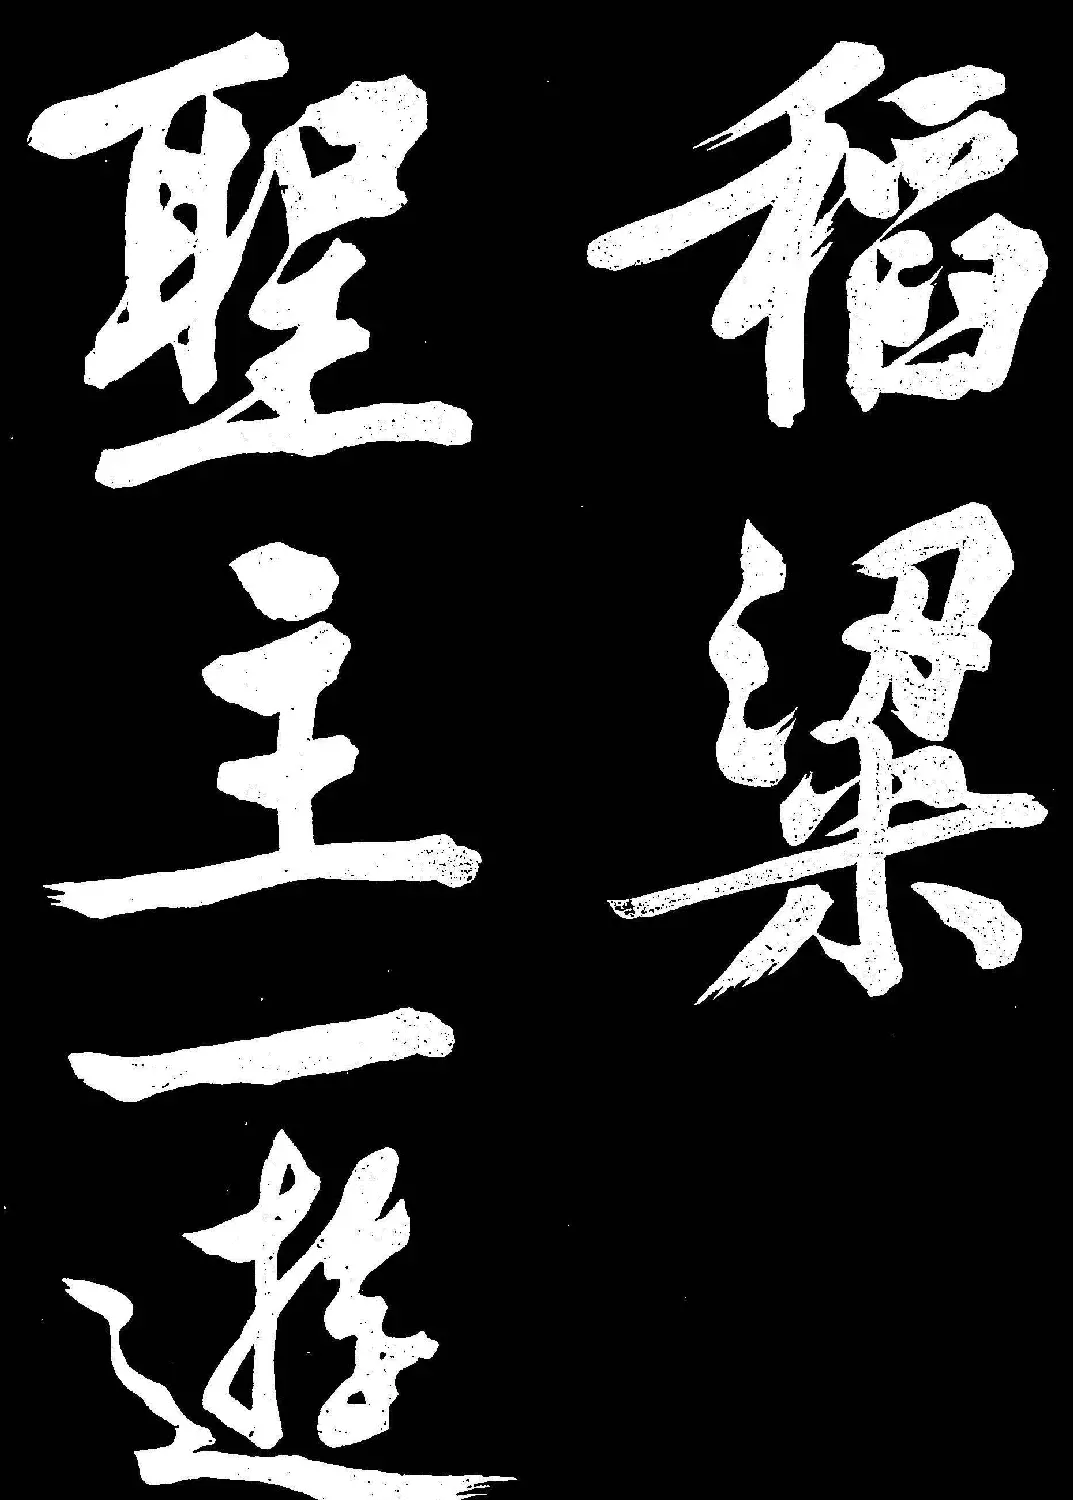 稻粱
聖主一遊